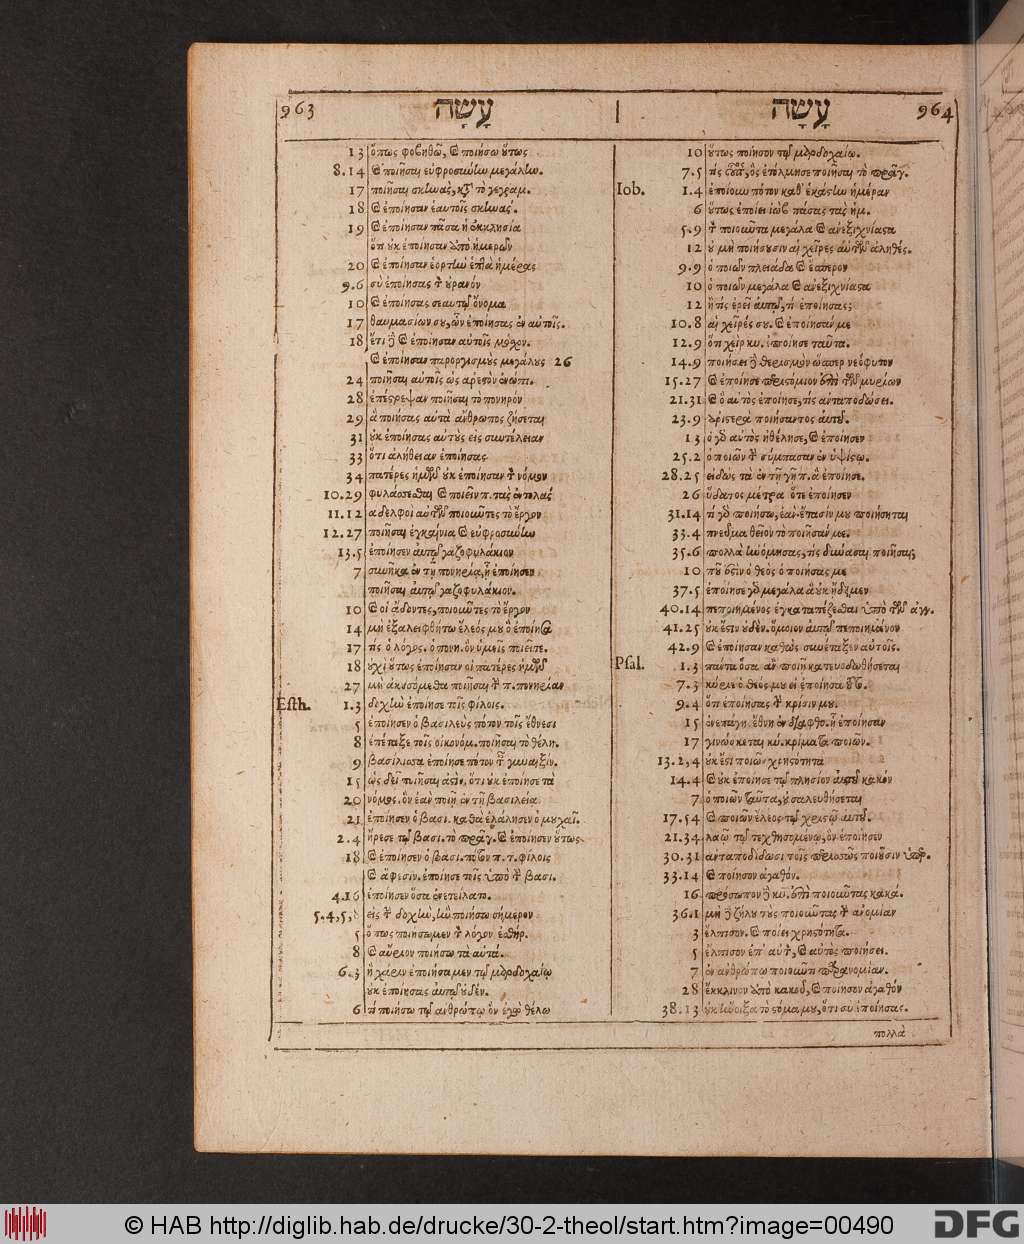 963 עָשָׂה | עָשָׂה 964
13 ὅπως φοβηθῶ, καὶ ποιήσω ὅτως
8.14 καὶ ποιῆσαι εὐφροσύνην μεγάλην.
17 ποιῆσαι σκηνὰς, κτ τὸ γεγραμ.
18 καὶ ἐποίησαν ἑαυτοῖς σκηνάς.
19 καὶ ἐποίησαν πᾶσα ἡ ἐκκλησία
ὅτι οὐκ ἐποίησαν ἀπὸ ἡμερῶν
20 καὶ ἐποίησαν ἑορτὴν ἑπτὰ ἡμέρας
9.6 σὺ ἐποίησας τὸν οὐρανόν
10 καὶ ἐποίησας σεαυτῷ ὄνομα
17 θαυμασίων σου, ὧν ἐποίησας ἐν αὐτοῖς.
18 ἔτι δὲ καὶ ἐποίησαν αὐτοῖς μόχον.
καὶ ἐποίησαν παροργισμοὺς μεγάλους 26
24 ποιῆσαι αὐτοῖς ὡς ἀρεστὸν ἐνωπι.
28 ἐπέστρεψαν ποιῆσαι τὸ πονηρὸν
29 ἃ ποιήσας αὐτὰ ἄνθρωπος ζήσεται
31 οὐκ ἐποίησας αὐτοὺς εἰς συντέλειαν
33 ὅτι ἀλήθειαν ἐποίησας
34 πατέρες ἡμῶν οὐκ ἐποίησαν τὸν νόμον
10.29 φυλάσσεσθαι καὶ ποιεῖν π. τὰς ἐντολάς
11.12 ἀδελφοὶ αὐτῶν ποιοῦντες τὸ ἔργον
12.27 ποιῆσαι ἐγκαίνια καὶ εὐφροσύνην
13.5 ἐποίησεν αὐτῷ γαζοφυλάκιον
7 συνῆκα ἐν τῇ πονηρίᾳ, ᾗ ἐποίησεν
ποιῆσαι αὐτῷ γαζοφυλάκιον.
10 καὶ οἱ ᾄδοντες, ποιοῦντες τὸ ἔργον
14 μὴ ἐξαλειφθήτω ἔλεός μου ὃ ἐποίησα
17 τίς ὁ λόγος. ὁ πονη. ὃν ὑμεῖς ποιεῖτε.
18 οὐχὶ οὕτως ἐποίησαν οἱ πατέρες ὑμῶν
27 μὴ ἀκουσόμεθα ποιῆσαι τὸν π. πονηρίαν
Esth. 1.3 δοχὴν ἐποίησε τοῖς φίλοις.
5 ἐποίησεν ὁ βασιλεὺς πότον τοῖς ἔθνεσι
8 ἐπέταξε τοῖς οἰκονόμ. ποιῆσαι τὸ θέλη.
9 βασίλισσα ἐποίησε πότον τ γυναιξίν.
15 ὡς δεῖ ποιῆσαι ἀστὶν, ὅτι οὐκ ἐποίησε τὰ
20 νόμος. ὃν ἐὰν ποιῇ ἐν τῇ βασιλείᾳ
21 ἐποίησεν ὁ βασι. καθὰ ἐλάλησεν ὁ μυχαῖ.
2.4 ἤρεσε τῷ βασι. τὸ πρᾶγ. καὶ ἐποίησεν οὕτως.
18 καὶ ἐποίησεν ὁ βασι. πότον π. τ. φίλοις
καὶ ἄφεσιν. ἐποίησε τοῖς ὑπὸ τὴν βασι.
4.16 ἐποίησεν ὅσα ἐνετείλατο.
5.4,5,8 εἰς τὴν δοχὴν, ἣν ποιήσω σήμερον
5 ὅπως ποιήσωμεν τὸν λόγον ἐσθηρ.
8 καὶ αὔριον ποιήσω τὰ αὐτά.
6.3 ἢ χάριν ἐποιήσαμεν τῷ μαρδοχαίῳ
οὐκ ἐποίησας αὐτῷ οὐδέν.
6 τί ποιήσω τῷ ἀνθρώπῳ ὃν ἐγὼ θέλω
10 οὕτως ποίησον τῷ μαρδοχαίῳ.
7.5 τίς οὗτος, ὃς ἐτόλμησε ποιῆσαι τὸ πρᾶγ.
Iob. 1.4 ἐποίουν πότον καθ' ἑκάστην ἡμέραν
6 οὕτως ἐποίει ἰὼβ πάσας τὰς ἡμ.
5.9 τὸν ποιοῦντα μεγάλα καὶ ἀνεξιχνίαστα
12 οὐ μὴ ποιήσουσιν αἱ χεῖρες αὐτῶν ἀληθές.
9.9 ὁ ποιῶν πλειάδα καὶ ἕσπερον
10 ὁ ποιῶν μεγάλα καὶ ἀνεξιχνίαστα
12 ἢ τίς ἐρεῖ αὐτῷ, τί ἐποίησας;
10.8 αἱ χεῖρές σου. καὶ ἐποίησάν με
12.9 ὅτι χεὶρ κυ. ἐποίησε ταῦτα.
14.9 ποιήσει δὲ θερισμὸν ὥσπερ νεόφυτον
15.27 καὶ ἐποίησε περιστόμιον ἐπὶ τῶν μηρίων
21.31 καὶ ὃ αὐτὸς ἐποίησε, τίς ἀνταποδώσει.
23.9 ἀριστερὰ ποιήσαντος αὐτοῦ.
13 ὃ γὰρ αὐτὸς ἠθέλησε, καὶ ἐποίησεν
25.2 ὁ ποιῶν τὴν σύμπασαν ἐν ὑψίστῳ.
28.25 εἰδὼς τὰ ἐν τῇ γῇ π. ἃ ἐποίησε.
26 ὕδατος μέτρα ὅτε ἐποίησεν
31.14 τί γὰρ ποιήσω, ἐὰν ἔτασίν μου ποιήσηται
33.4 πνεῦμα θεῖον τὸ ποιῆσάν με.
35.6 πολλὰ ἠνόμησας, τίς δύνασαι ποιῆσαι;
10 ποῦ ἐστὶν ὁ θεὸς ὁ ποιήσας με
37.5 ἐποίησε γὰρ μεγάλα ἃ οὐκ ᾔδειμεν
40.14 πεποιημένος ἐγκαταπαίζεσθαι ὑπὸ τῶν ἀγγ.
41.25 οὐκ ἔστιν οὐδὲν. ὅμοιον αὐτῷ πεποιημένον
42.9 καὶ ἐποίησαν καθὼς συνέταξεν αὐτοῖς.
Psal. 1.3 πάντα ὅσα ἂν ποιῇ κατευοδωθήσεται
7.3 κύριε ὁ θεός μου εἰ ἐποίησα τοῦτο.
9.4 ὅτι ἐποίησας τὴν κρίσιν μου.
15 ἐνεπάγη. ἔθνη ἐν διαφθο. ᾗ ἐποίησαν
17 γινώσκεται κύ. κρίματα ποιῶν.
13.2,4 οὐκ ἔστι ποιῶν χρηστότητα
14.4 καὶ οὐκ ἐποίησε τῷ πλησίον αὐτοῦ κακόν
7 ὁ ποιῶν ταῦτα, οὐ σαλευθήσεται
17.54 καὶ ποιῶν ἔλεος τῷ χριστῷ αὐτοῦ.
21.34 λαῷ τῷ τεχθησομένῳ, ὃν ἐποίησεν
30.31 ἀνταποδίδωσι τοῖς περισσῶς ποιοῦσιν ὑπερ.
33.14 καὶ ποίησον ἀγαθόν.
16 πρόσωπον δὲ κυ. ἐπὶ ποιοῦντας κακά.
36.1 μὴ δὲ ζήλου τοὺς ποιοῦντας τὴν ἀνομίαν
3 ἔλπισον. καὶ ποίει χρηστότητα.
5 ἔλπισον ἐπ' αὐτ, καὶ αὐτὸς ποιήσει.
7 ἐν ἀνθρώπῳ ποιοῦντι παρανομίαν.
28 ἔκκλινον ἀπὸ κακοῦ, καὶ ποίησον ἀγαθόν
38.13 οὐκ ἤνοιξα τὸ στόμα μου, ὅτι σὺ ἐποίησας.
πολλὰ
© HAB http://diglib.hab.de/drucke/30-2-theol/start.htm?image=00490
DFG